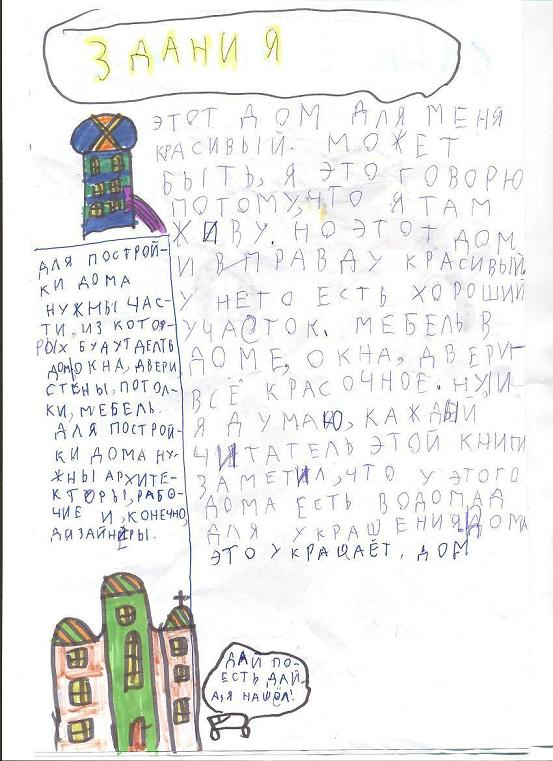 ЗДАНИЯ
ЭТОТ ДОМ ДЛЯ МЕНЯ
КРАСИВЫЙ. МОЖЕТ
БЫТЬ, Я ЭТО ГОВОРЮ
ПОТОМУ, ЧТО Я ТАМ
ЖИВУ. НО ЭТОТ ДОМ
И ВПРАВДУ КРАСИВЫЙ
У НЕГО ЕСТЬ ХОРОШИЙ
УЧАСТОК. МЕБЕЛЬ В
ДОМЕ, ОКНА, ДВЕРИ-
ВСЁ КРАСОЧНОЕ. НУ, И
Я ДУМАЮ, КАЖДЫЙ
ЧИТАТЕЛЬ ЭТОЙ КНИГИ
ЗАМЕТИЛ, ЧТО У ЭТОГО
ДОМА ЕСТЬ ВОДОПАД
ДЛЯ УКРАШЕНИЯ ДОМА
ЭТО УКРАЩАЕТ, ДОМ
ДЛЯ ПОСТРОЙ-
КИ ДОМА
НУЖМЫ ЧАС-
ТИ, ИЗ КОТОР-
РЫХ БУДУТ ДЕЛТЬ
ДОМ, ОКНА, ДВЕРИ
СТЕНЫ, ПОТОЛ-
КИ, МЕБЕЛЬ.
ДЛЯ ПОСТРОЙ-
КИ ДОМА НУ-
ЖНЫ АРХИТЕ-
КТОРЫ, РАБО-
ЧИЕ И, КОНЕЧНО,
ДИЗАЙНЕРЫ.
ДАЙ ПО-
ЕСТЬ, ДАЙ-
А, Я НАШЁЛ!